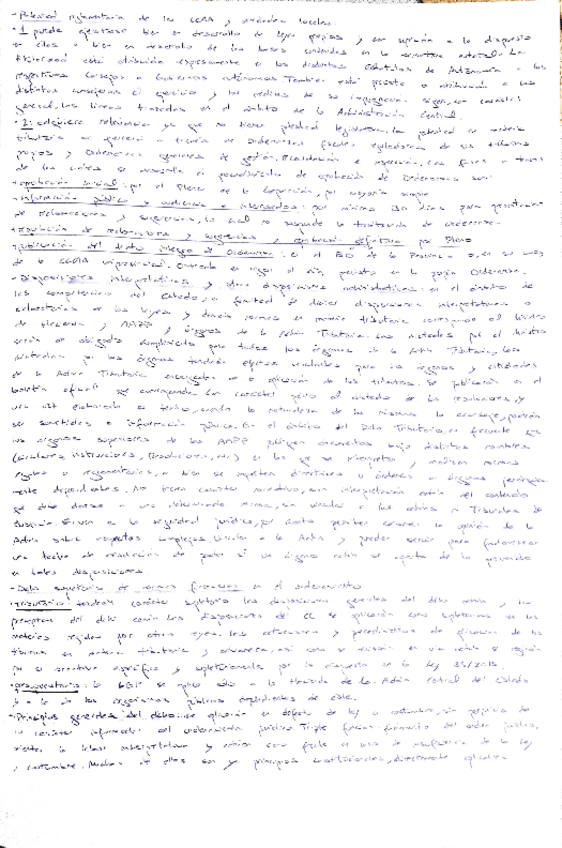 - Potestad reglamentaria de las CCAA y entidades locales.
· 1 puede ejercerse bien en desarrollo de leyes propias y con sujeción a lo dispuesto
en ellas o bien en desarrollo de las bases contenidas en la normativa estatal. La
está atribuida expresamente en los distintos Estatutos de Autonomía a los
respectivos consejos o Gobiernos autónomos. También está prevista la atribución a los
distintos consejeros el ejercicio y los medios de su impugnación siguen, con carácter
general, las líneas trazadas en el ámbito de la Administración Central.
· 2: adquiere relevancia ya que no tienen potestad legislativa. La potestad en materia
tributaria se ejercerá a través de Ordenanzas fiscales reguladoras de sus tributos
propios y Ordenanzas generales de gestión, recaudación e inspección. Las fases a través
de las cuales se desarrolla el procedimiento de aprobación de Ordenanzas son:
· aprobación inicial: por el Pleno de la Corporación, por mayoría simple
· información pública y audiencia a interesados: por mínimo 30 días para presentación
de reclamaciones y sugerencias, lo cual no suspende la tramitación de
· resolución de reclamaciones y sugerencias y aprobación definitiva por Pleno
· publicación del texto íntegro de Ordenanza: en el BO de la Provincia o, en su caso,
de la CCAA uniprovincial. Entrada en vigor el día previsto en la propia Ordenanza.
- Disposiciones interpretativas y otras disposiciones administrativas: en el ámbito de
las competencias del Estado, la facultad de dictar disposiciones interpretativas o
aclaratorias de las leyes y demás normas en materia tributaria corresponde al Ministro
de Hacienda y AAPP y órganos de la Admón Tributaria. Las dictadas por el Ministro
serán de obligado cumplimiento para todos los órganos de la Admón Tributaria, las
dictadas por los órganos tendrán efectos vinculantes para los órganos y entidades
de la Admón Tributaria encargados de la aplicación de los tributos. Se publicarán en el
boletín oficial que corresponda. Con carácter previo al dictado de las resoluciones, y
una vez elaborado su texto, cuando la naturaleza de las mismas lo aconseje, podrán
ser sometidas a información pública. En el ámbito del Dcho Tributario, es frecuente que
los órganos superiores de las AAPP dicten documentos bajo distintos nombres
(circulares, instrucciones, resoluciones, etc.) en los que se interpretan y matizan normas
legales o reglamentarias, o bien se imparten directrices u órdenes a órganos jerárquica-
mente dependientes. No tienen carácter normativo, son interpretación del contenido
que debe darse a una determinada norma, sin vincular a los ni Tribunales de
Justicia. Sirven a la seguridad jurídica, por cuanto permiten conocer la opinión de la
Admón sobre aspectos complejos, vinculan a la Admón y pueden servir para fundamentar
una técnica de desviación de poder si un órgano se aparta de lo prevenido
en tales disposiciones.
- Dcho supletorio de normas financieras en el ordenamiento
· tributario: tendrán carácter supletorio las disposiciones generales del dcho admvo y los
preceptos del dcho común. Las disposiciones del CC se aplicarán como supletorias en las
materias regidas por otras leyes. Las actuaciones y procedimientos de aplicación de los
tributos en materia tributaria y aduanera, así como su revisión en vía admva se regirán
por su normativa específica y supletoriamente por lo dispuesto en la Ley 39/2015.
· presupuestario: la LGP se aplica sólo a la Hacienda de la Admón Central del Estado
y a la de los organismos públicos dependientes de éste.
- Principios generales del dcho: se aplicarán en defecto de ley o costumbre, sin perjuicio de
su carácter informador del ordenamiento jurídico. Triple función: fundamento del orden jurídico,
orientan la labor interpretativa y actúan como fuente en caso de insuficiencia de la ley
y costumbre. Muchos de ellos son ya principios constitucionales, directamente aplicables.